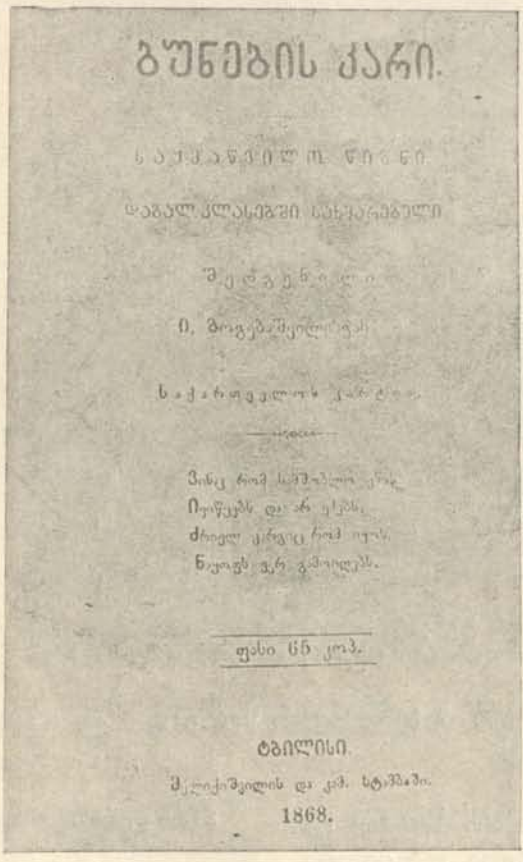 ბუნების კარი.
საყმაწვილო წიგნი
დაბალ კლასებში სახმარებელი
შედგენილი
ი. გოგებაშვილისაგან
საქართველოს კარტით.
ვინც რომ სამშობლო ენას
ივიწყებს და არ
ძრიელ კარგიც რომ იყოს,
ნაყოფს ვერ გამოიღებს.
ფასი 65 კოპ.
ტბილისი.
მელიქიშვილის და კამ. სტამბაში.
1868.